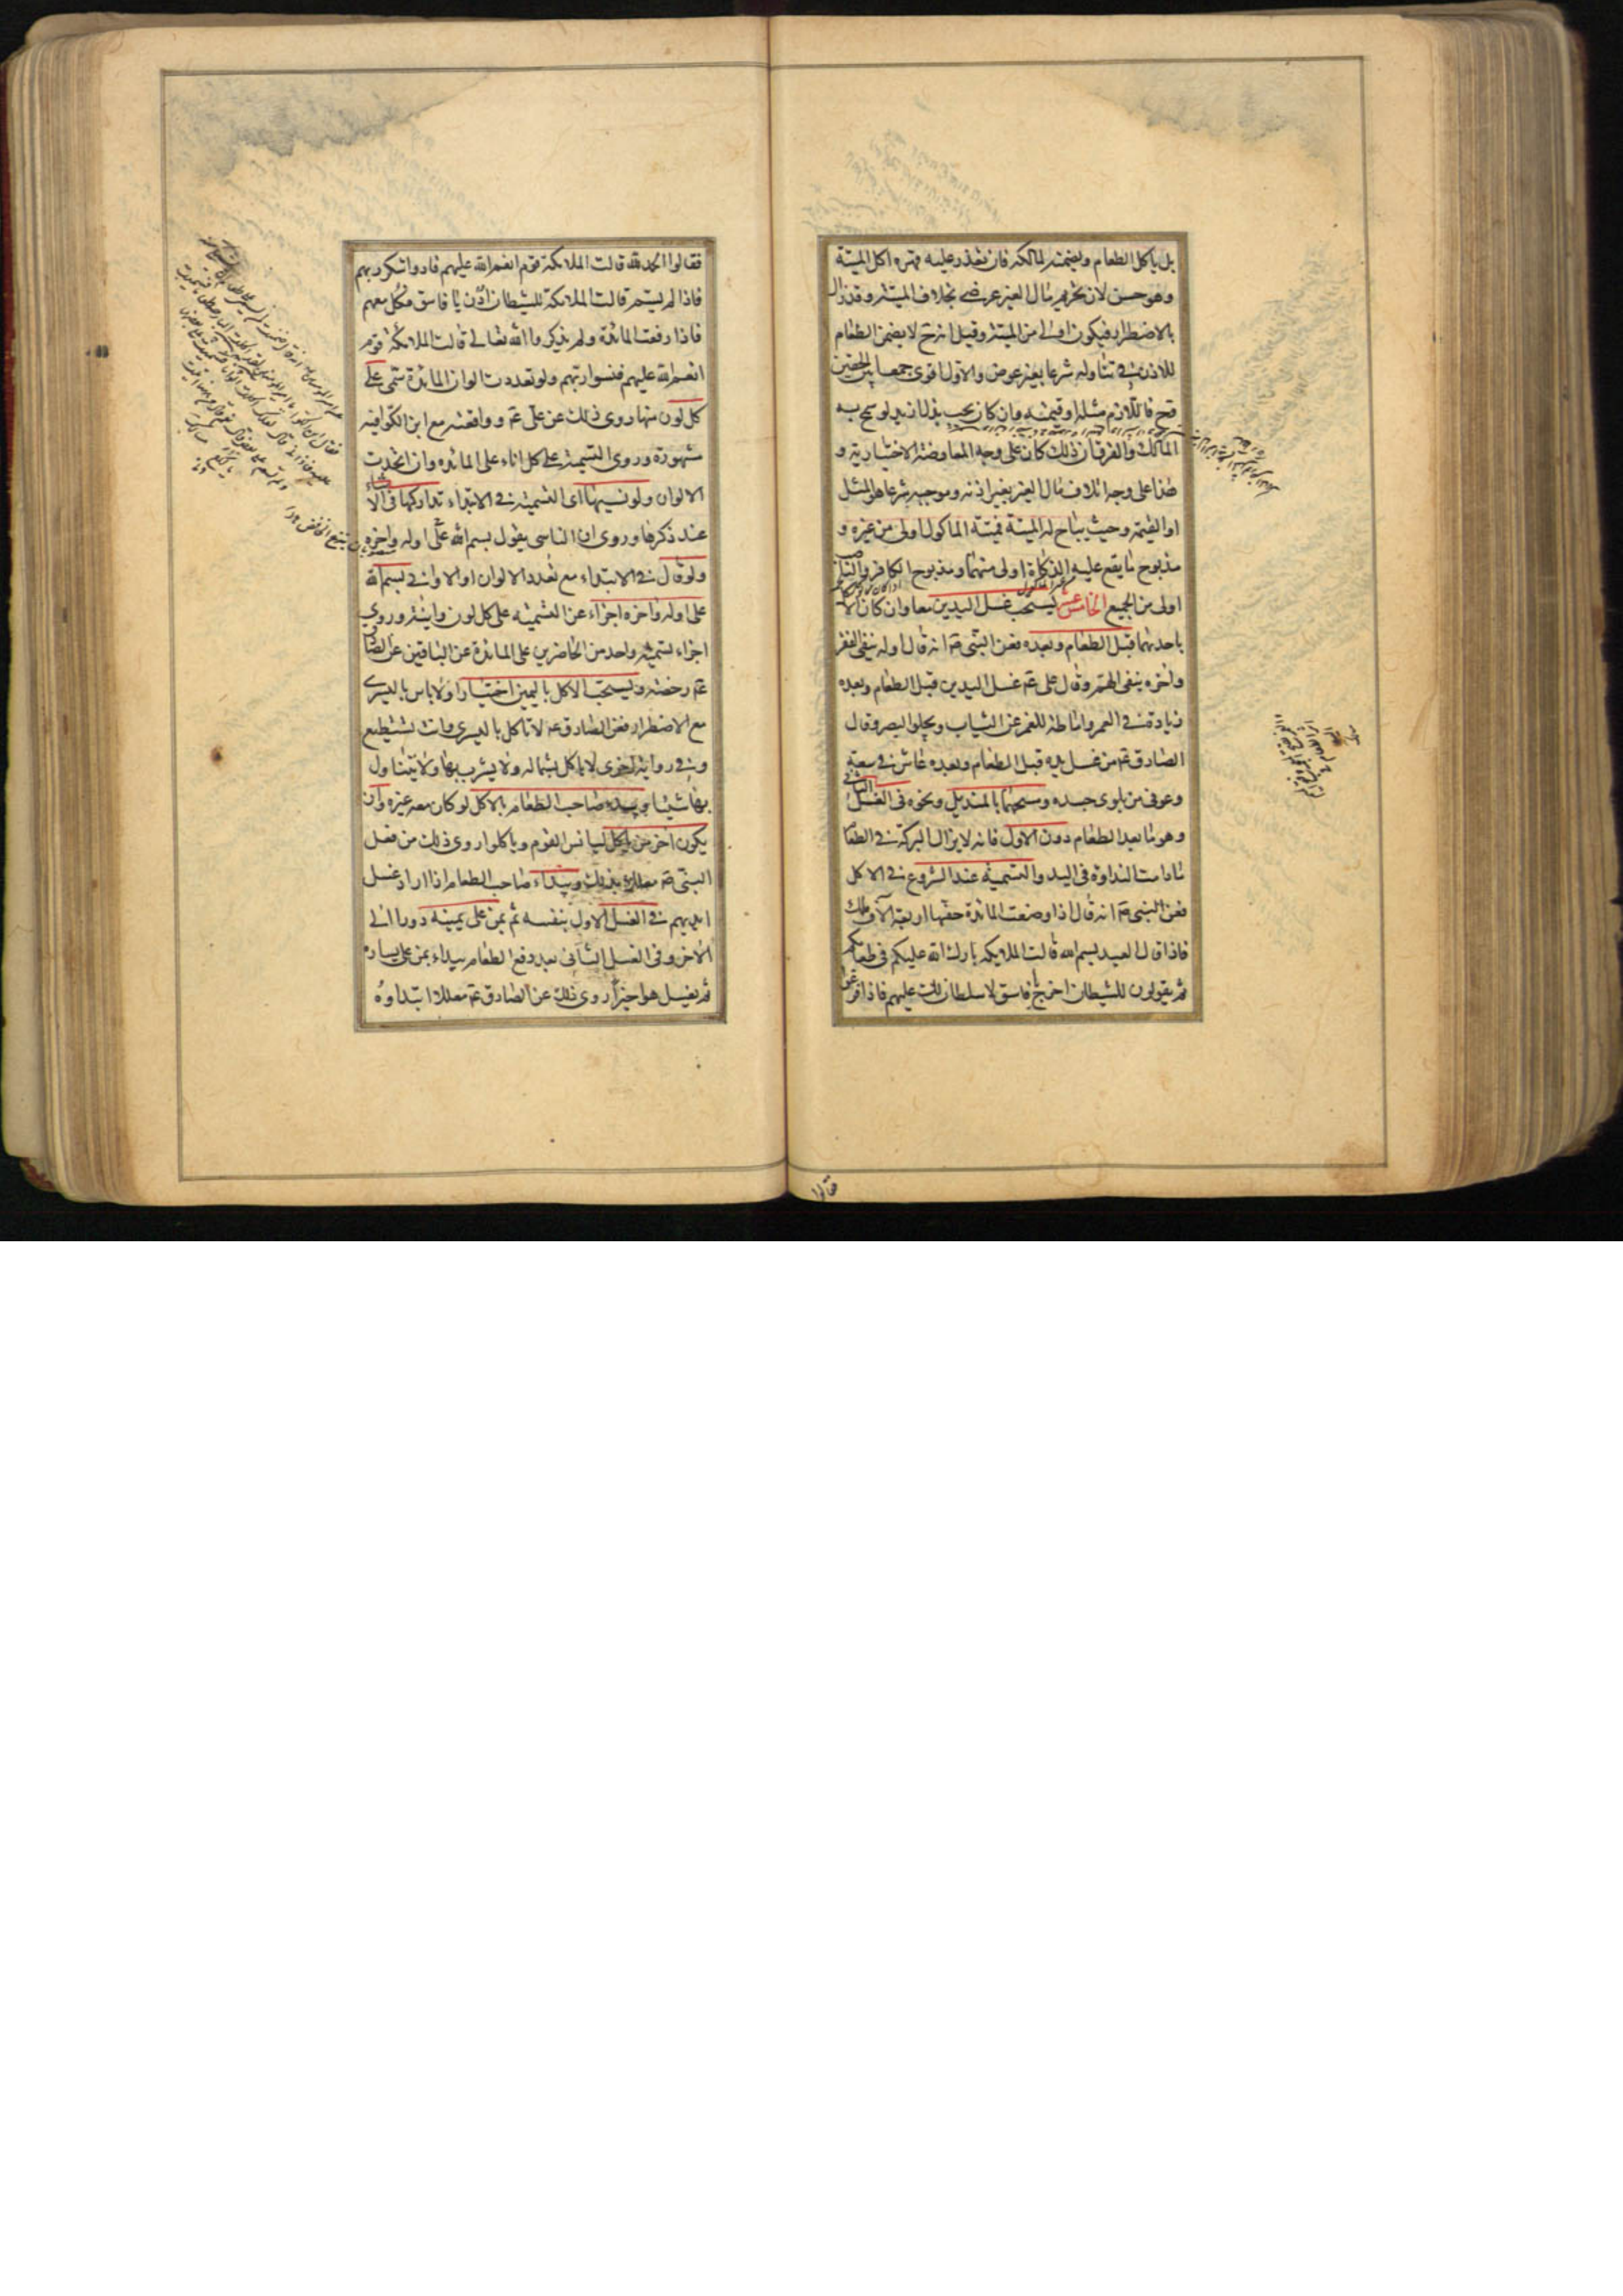 بل ياكل الطعام ويضمنه لمالكه فان تعذر عليه قهره اكل الميتة
وهو حسن لان تحريم مال الغير عرضي بخلاف الميتة وقد زال
بالاضطرار فيكون اولى من الميتة وقيل انه ح لا يضمن الطعام
للاذن في تناوله شرعا بغير عوض والاول اقوى جمعا بين الحقين
وح فاللازم مثله او قيمته وان كان يجب بذل ازيد لو سمح به
المالك والفرق ان ذلك كان على وجه المعاوضة الاختيارية و
هذا على وجه اتلاف مال الغير بغير اذنه وموجبه شرعا هو المثل
او القيمة وحيث يباح له الميتة فميتة الماكول اولى من غيره و
مذبوح ما يقع عليه الذكاة اولى منهما ومذبوح الكافر والناصب
اولى من الجميع الخامس عشر يستحب غسل اليدين معا وان كان الاكل
باحدهما قبل الطعام وبعده فعن النبي ص انه قال اوله ينفي الفقر
واخره ينفي الهم وقال علي ع غسل اليدين قبل الطعام وبعده
زيادة في العمر واماطة للغمر عن الثياب ويجلو البصر وقال
الصادق ع من غسل يده قبل الطعام وبعده عاش في سعة
وعوفي من بلوى جسده ومسحهما بالمنديل ونحوه في الغسل الثاني
وهو ما بعد الطعام دون الاول فانه لا يزال البركة في الطعام
ما دامت النداوة في اليد والتسمية عند الشروع في الاكل
فعن النبي ص انه قال اذا وضعت المائدة حفها اربعة الاف ملك
فاذا قال العبد بسم الله قالت الملايكة بارك الله عليكم في طعامكم
ثم يقولون للشيطان اخرج يا فاسق لا سلطان لك عليهم فاذا فرغوا
فقالوا
فقالوا الحمد لله قالت الملائكة قوم انعم الله عليهم فادوا شكر ربهم
فاذا لم يسم قالت الملائكة للشيطان ادن يا فاسق فكل معهم
فاذا رفعت المائدة ولم يذكروا الله تعالى قالت الملائكة قوم
انعم الله عليهم فنسوا ربهم ولو تعددت الوان المائدة سمى على
كل لون منها روي ذلك عن علي ع وواقعته مع ابن الكوا فيه
مشهورة وروي التسمية على كل اناء على المائدة وان اتحدت
الالوان ولو نسيها اى التسمية في الابتداء تداركها في الاثناء
عند ذكرها وروي ان الناسي يقول بسم الله على اوله واخره
ولو قال في الابتداء مع تعدد الالوان او الاواني بسم الله
على اوله واخره اجزاء عن التسمية على كل لون وانية وروي
اجزاء تسمية واحد من الحاضرين على المائدة عن الباقين عن الصادق
ع رخصة ويستحب الاكل باليمين اختيارا ولا باس باليسرى
مع الاضطرار فعن الصادق ع لا تاكل باليسرى وانت تستطيع
وفي رواية اخرى لا ياكل بشماله ولا يشرب بها ولا يتناول
بها شيئا ويبدء صاحب الطعام بالاكل لو كان معه غيره وان
يكون اخر من ياكل ليانس القوم وياكلوا روي ذلك من فعل
النبي ص معللا بذلك ويبداء صاحب الطعام اذا اراد غسل
ايديهم في الغسل الاول بنفسه ثم بمن على يمينه دورا الى
الاخر وفي الغسل الثاني بعد رفع الطعام يبداء بمن على يساره
ثم يغسل هو اخيرا روي ذلك عن الصادق ع معللا ابتداوه